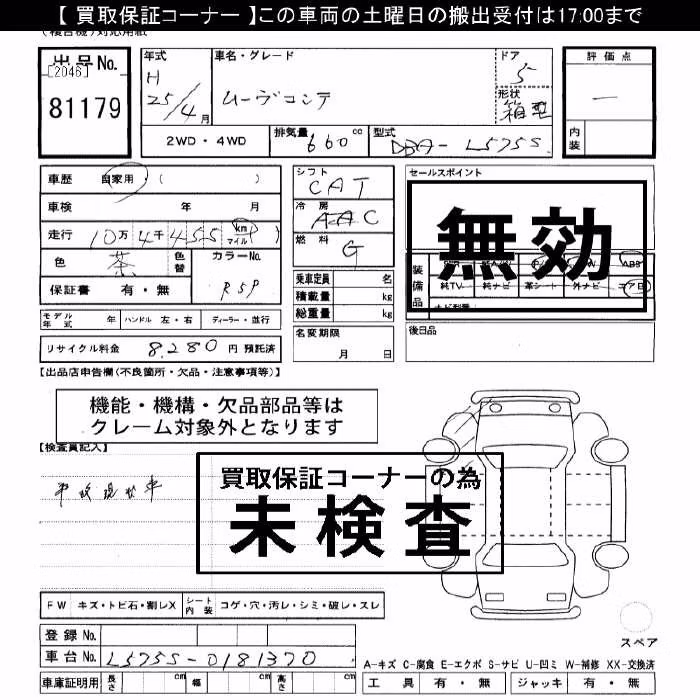 【 買取保証コーナー 】この車両の土曜日の搬出受付は17:00まで
出品No.
[2046]
81179
年式
H
25/4月
車名・グレード
ムーヴコンテ
ドア
5
形状
箱型
評価点
ー
内装
2WD・4WD
排気量 660 cc
型式 DBA-L575S
車歴 自家用 ( )
車検 年 月
走行 10万4千455 km マイル
色 茶 色替
カラーNo. R59
保証書 有・無
シフト CAT
冷房 AAC
燃料 G
乗車定員 名
積載量 kg
総重量 kg
セールスポイント
無効
装備品
ABS
純TV 純ナビ 革シート 外ナビ エアB
後日品
モデル年式 年 ハンドル 左・右 ディーラー・並行
名変期限 月 日
リサイクル料金 8,280 円 預託済
【出品店申告欄(不良箇所・欠品・注意事項等)】
機能・機構・欠品部品等は
クレーム対象外となります
【検査員記入】
買取保証コーナーの為
未検査
FW キズ・トビ石・割レX シート内装 コゲ・穴・汚レ・シミ・破レ・スレ
スペア
登録No.
車台No. L575S-0181370
A-キズ C-腐食 E-エクボ S-サビ U-凹ミ W-補修 XX-交換済
車庫証明用 長さ cm 幅 cm 高さ cm
工具 有・無 ジャッキ 有・無